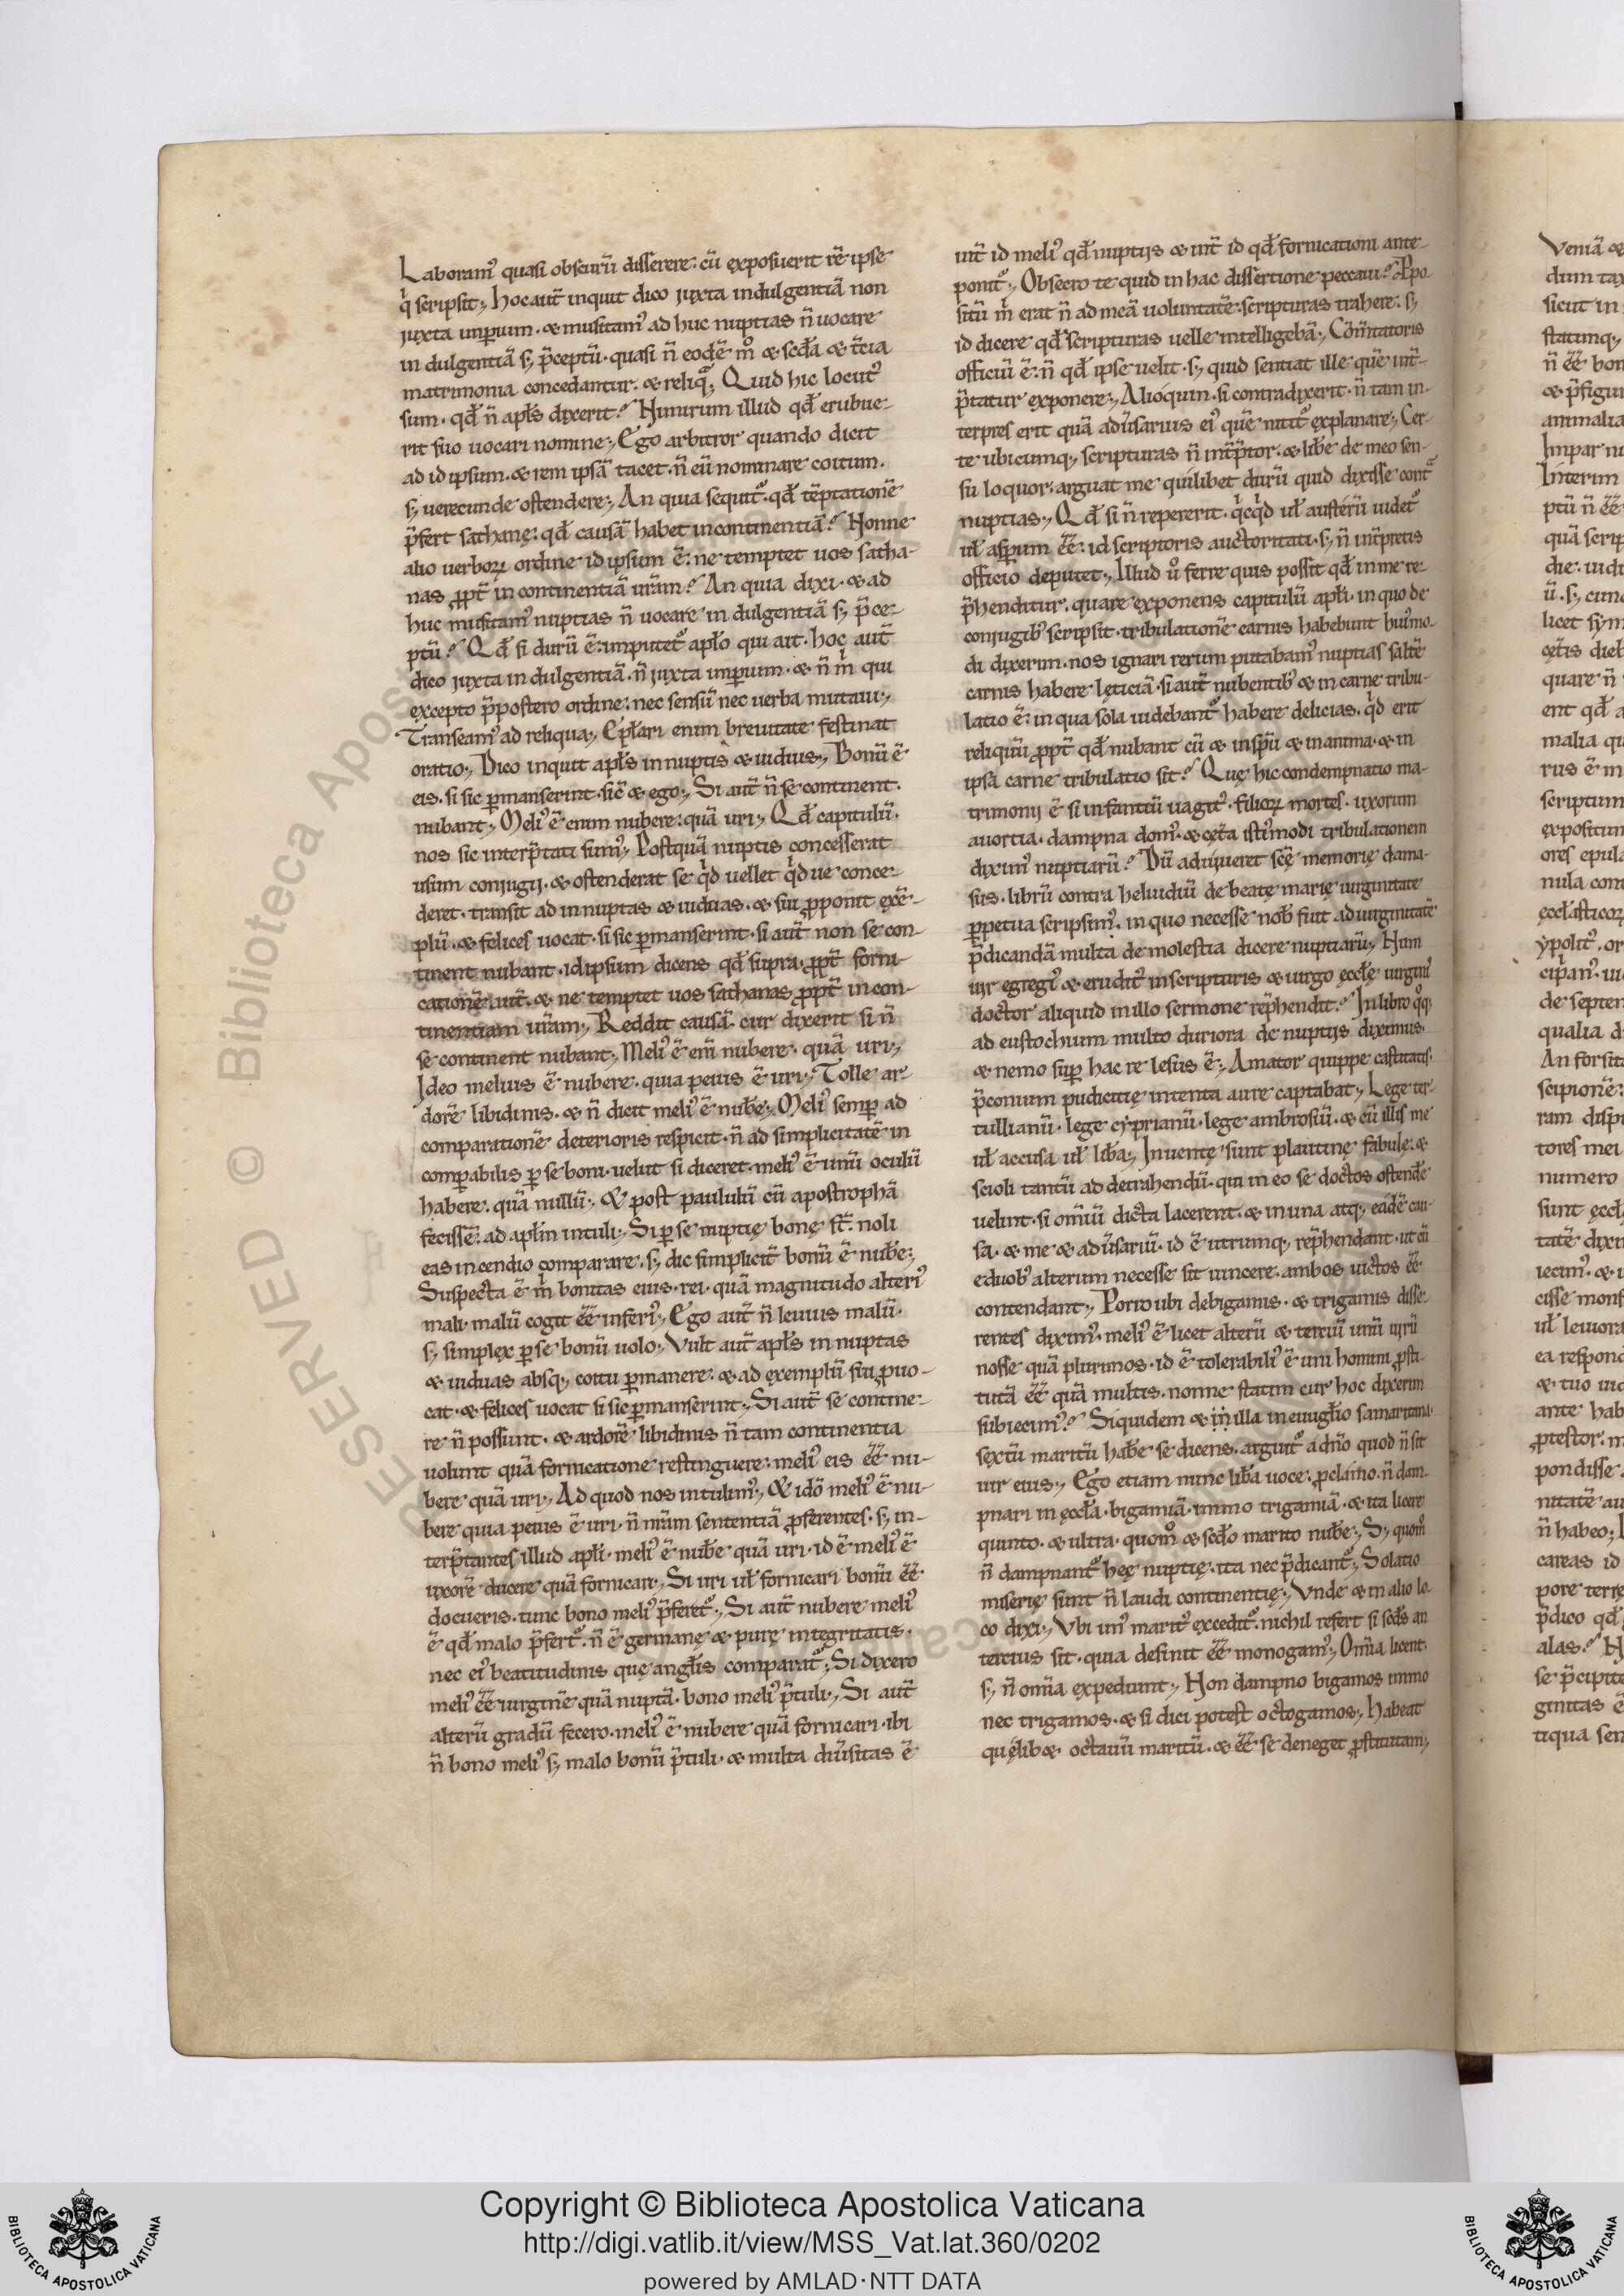 Laboram᾽ quasi obscurū disserere. cū exposuerit rē ipse
q̍ scripsit; Hoc aut̄ inquit dico juxta indulgentiā non
juxta imꝑium. & musitam᾽ ad huc nuptias n̄ uocare
in dulgentiā s; p̄ceptū. quasi n̄ eodē m̊ & scđa & t̄cia
matrimonia concedantur. & reliq̃; Quid hic locut᾽
sum. qđ n̄ apłs dixerit? Nimirum illud qđ erubue-
rit suo uocari nomine; Ego arbitror quando dicit
ad id ipsum. & rem ipsā tacet. n̄ eū nominare coitum.
s; uerecunde ostendere; An quia sequit᷑. qđ tēptationē
p̄fert sathanę. qđ causā habet incontinentiā? Nonne
alio uerboꝝ ordine id ipsum ē. ne temptet uos satha-
nas ꝓpt̄ in continentiā urām? An quia dixi. & ad
huc musitam᾽ nuptias n̄ uocare in dulgentiā s; p̄ce-
ptū? Qđ si durū ē. imputet᷑ apło qui ait. hoc aut̄
dico juxta in dulgentiā. n̄ juxta imꝑium. & n̄ m̍ qui
excepto p̄postero ordine. nec sensū nec uerba mutaui;
Transeam᾽ ad reliqua; Epłari enim breuitate festinat
oratio; Dico inquit apłs in nuptis & uiduis; Bonū ē
eis. si sic ꝑmanserint. sic̄ & ego; Si aut̄ n̄ se continent.
nubant; Meli᾽ ē enim nubere. quā uri; Qđ capitulū.
nos sic interp̄tati sum᾽; Postquā nuptis concesserat
usum conjugij. & ostenderat se q̍d uellet q̍d ue conce-
deret. transit ad in nuptas & uiduas. & sui ꝓponit exē-
plū. & felices uocat. si sic ꝑmanserint. si aut̄ non se con-
tinent nubant. id ipsum dicens qđ supra. ꝓpt̄ forni-
cationē aut̄. & ne temptet uos sathanas ꝓpt̄ in con-
tinentiam urām; Reddit causā. cur dixerit si n̄
se continent nubant; Meli᾽ ē em̄ nubere. quā uri;
Ideo melius ē nubere. quia peius ē uri; Tolle ar-
dorē libidinis. & n̄ dicit meli᾽ ē nub̄e; Meli᾽ semꝑ ad
comparationē deterioris respicit. n̄ ad simplicitatē in
comꝑabilis ꝑ se boni. uelut si diceret. meli᾽ ē unū oculū
habere. quā nullū; & post paululū cū apostrophā
fecissē. ad apłm intuli; Si ꝑ se nuptię bonę st̄. noli
eas incendio comparare. s; dic simplicit̄ bonū ē nub̄e;
Suspecta ē m̍ bonitas eius. rei. quā magnitudo alteri᾽
mali. malū cogit ēē inferi᾽; Ego aut̄ n̄ leuius malū.
s; simplex ꝑ se bonū uolo; Vult aut̄ apłs in nuptas
& uiduas absq; coitu ꝑmanere. & ad exemplū sui ꝓuo-
cat. & felices uocat si sic ꝑmanserint; Si aut̄ se contine-
re n̄ possunt. & ardorē libidinis n̄ tam continentia
uolunt quā fornicatione restinguere. meli᾽ eis ēē nu-
bere quā uri; Ad quod nos intulim᾽; & idō meli᾽ ē nu-
bere quia peius ē uri. n̄ nrām sententiā ꝓferentes. s; in-
terp̄tantes illud apłi. meli᾽ ē nub̄e quā uri. id ē meli᾽ ē
uxorē ducere quā fornicari; Si uri uł fornicari bonū ēē
docueris. tunc bono meli᾽ p̄feret᷑; Si aut̄ nubere meli᾽
ē qđ malo p̄fert᷑. n̄ ē germanę & purę integritatis.
nec ei᾽ beatitudinis quę angłis comparat᷑; Si dixero
meli᾽ ēē uirginē quā nuptā. bono meli᾽ p̄tuli; Si aut̄
alterū gradū fecero. meli᾽ ē nubere quā fornicari. ibi
n̄ bono meli᾽ s; malo bonū p̄tuli. & multa diūsitas ē
int̄ id meli᾽ qđ nuptijs & int̄ id qđ fornicationi ante-
ponit᷑; Obsecro te quid in hac dissertione peccaui? Ꝓpo
sitū m̍ erat n̄ ad meā uoluntatē. scripturas trahere. s;
id dicere qđ scripturas uelle intelligebā; Com̄ntatoris
officiū ē. n̄ qđ ipse uelit. s; quid sentiat ille quē int̄-
p̄tatur exponere; Alioquin. si contradixerit. n̄ tam in-
terpres erit quā adūsarius ei᾽ quē nitit᷑ explanare; Cer-
te ubicumq; scripturas n̄ int̄p̄tor. & lib̄e de meo sen-
su loquor. arguat me quilibet durū quid dixisse cont̃
nuptias; Qđ si n̄ repererit. q̍cq̍d uł austerū uidet᷑
uł asꝑum ēē. id scriptoris auctoritati. s; n̄ int̄pretis
officio deputet; Illud ů ferre quis possit qđ in me re-
p̄henditur. quare exponens capitulū apłi. in quo de
conjugib᾽ scripsit. tribulationē carnis habebunt hui᾽mo-
di dixerim. nos ignari rerum putabam᾽ nuptias saltē
carnis habere lęticiā. si aut̄ nubentib᾽ & in carne tribu-
latio ē. in qua sola uidebant᷑ habere delicias. q̍d erit
reliquū ꝓpt̄ qđ nubant cū & in spū & in anima. & in
ipsa carne tribulatio sit? Quę hic condempnatio ma-
trimonij ē si infantiū uagit᾽. filioꝝ mortes. uxorum
auortia. dampna dom᾽. & cęt̄a isti᾽modi tribulationem
dixim᾽ nuptiarū? Dū adiuueret scē memorię dama-
sus. librū contra heluidiū de beatę marię uirginitate
ꝑpetua scripsim᾽. in quo necesse nob̄ fuit ad uirginitatē
p̄dicandā multa de molestia dicere nuptiarū; Num
uir egregi᾽ & erudit᾽ in scripturis & uirgo ęcclę uirginis
doctor aliquid in illo sermone rep̄hendit? In libro q̊q;
ad eustochium multo duriora de nuptijs diximus.
& nemo suꝑ hac re lesus ē; Amator quippe castitatis.
p̄conium pudicitię intenta aure captabat; Lege ter-
tullianū. lege cyprianū. lege ambrosiū. & cū illis me
uł accusa uł lib̄a; Inuentę sunt plautinę fabulę. &
scioli tantū ad detrahendū. qui in eo se doctos ostend̄e
uelint. si om̄iū dicta lacerent. & in una atq; eādē cau-
sa. & me & adūsariū. id ē utrumq; rep̄hendant. ut cū
e duob᾽ alterum necesse sit uincere. ambos uictos ēē
contendant; Porro ubi de bigamis. & trigamis disse-
rentes dixim᾽. meli᾽ ē licet alterū & terciū unū uirū
nosse quā plurimos. id ē tolerabili᾽ ē uni homini ꝓsti-
tutā ēē quā multis. nonne statim cur hoc dixerim
subiecim᾽? Siquidem & illa in euuglio samaritana.
sextū maritū hab̄e se dicens. arguit᷑ a dn̄o quod n̄ sit
uir eius; Ego etiam nunc lib̄a uoce. ꝓclamo. n̄ dam-
pnari in ęccła. bigamiā. immo trigamiā. & ita licere
quinto. & ultra. quom̊ & scđo marito nub̄e; S; quom̊
n̄ dampnant᷑ hęę nuptię. ita nec p̄dicant᷑; Solatio
miserię sunt n̄ laudi continentię; Vnde & in alio lo-
co dixi; Vbi un᾽ marit᾽ excedit᷑. nichil refert si scđs an
tercius sit. quia desinit ēē monogam᾽; Om̄ia licent.
s; n̄ omīa expediunt; Non dampno bigamos immo
nec trigamos. & si dici potest octogamos; habeat
quęlib& octauū maritū. & ēē se deneget ꝓstitutam;
Copyright © Biblioteca Apostolica Vaticana
http://digi.vatlib.it/view/MSS_Vat.lat.360/0202
powered by AMLAD·NTT DATA
BIBLIOTECA APOSTOLICA VATICANA
BIBLIOTECA APOSTOLICA VATICANA